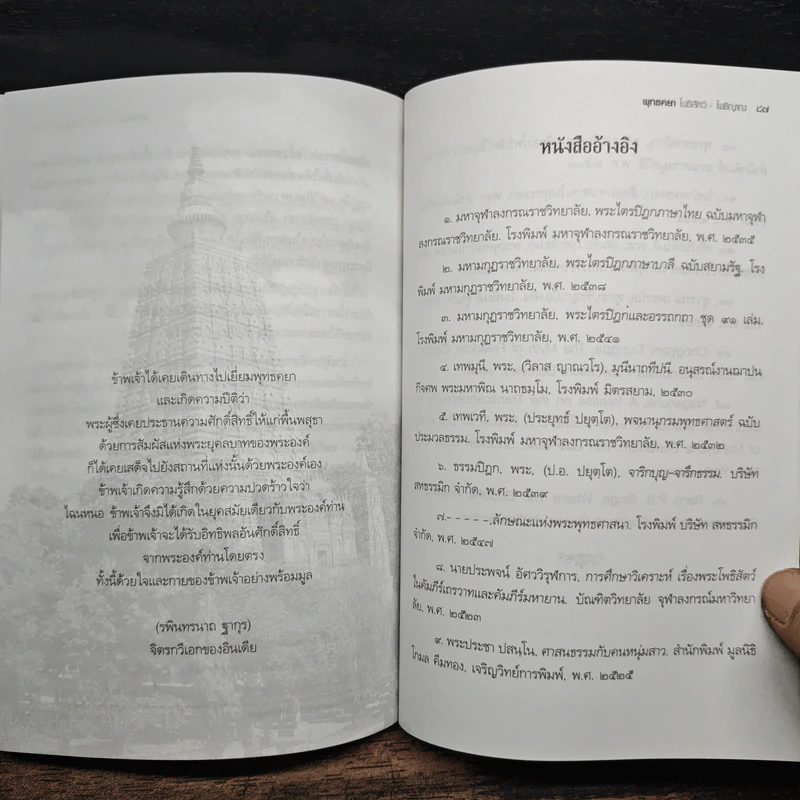 ข้าพเจ้าได้เคยเดินทางไปเยี่ยมพุทธคยา
และเกิดความปีติว่า
พระผู้ซึ่งเคยประธานความศักดิ์สิทธิ์ให้แก่พื้นพสุธา
ด้วยการสัมผัสแห่งพระยุคลบาทของพระองค์
ก็ได้เคยเสด็จไปยังสถานที่แห่งนั้นด้วยพระองค์เอง
ข้าพเจ้าเกิดความรู้สึกด้วยความปวดร้าวใจว่า
ไฉนหนอ ข้าพเจ้าจึงมิได้เกิดในยุคสมัยเดียวกับพระองค์ท่าน
เพื่อข้าพเจ้าจะได้รับอิทธิพลอันศักดิ์สิทธิ์
จากพระองค์ท่านโดยตรง
ทั้งนี้ด้วยใจและกายของข้าพเจ้าอย่างพร้อมมูล
(รพินทรนาถ ฐากุร)
จิตรกวีเอกของอินเดีย
พุทธคยา โพธิสัตว์ - โพธิญาณ ๘๗
หนังสืออ้างอิง
๑. มหาจุฬาลงกรณราชวิทยาลัย, พระไตรปิฎกภาษาไทย ฉบับมหาจุฬา
ลงกรณราชวิทยาลัย. โรงพิมพ์ มหาจุฬาลงกรณราชวิทยาลัย, พ.ศ. ๒๕๓๕
๒. มหามกุฏราชวิทยาลัย, พระไตรปิฎกภาษาบาลี ฉบับสยามรัฐ. โรง
พิมพ์ มหามกุฏราชวิทยาลัย, พ.ศ. ๒๕๓๘
๓. มหามกุฏราชวิทยาลัย, พระไตรปิฎกและอรรถกถา ชุด ๙๑ เล่ม.
โรงพิมพ์ มหามกุฏราชวิทยาลัย, พ.ศ. ๒๕๔๑
๔. เทพมุนี, พระ, (วิลาส ญาณวโร), มุนีนาถทีปนี. อนุสรณ์งานฌาปน
กิจศพ พระมหาพิณ นาถธมฺโม, โรงพิมพ์ มิตรสยาม, ๒๕๓๐
๕. เทพเวที, พระ, (ประยุทธ์ ปยุตฺโต), พจนานุกรมพุทธศาสตร์ ฉบับ
ประมวลธรรม. โรงพิมพ์ มหาจุฬาลงกรณราชวิทยาลัย, พ.ศ. ๒๕๓๒
๖. ธรรมปิฎก, พระ, (ป.อ. ปยุตฺโต), จาริกบุญ-จารึกธรรม. บริษัท
สหธรรมิก จำกัด, พ.ศ. ๒๕๓๙
๗.- - - - -.ลักษณะแห่งพระพุทธศาสนา. โรงพิมพ์ บริษัท สหธรรมิก
จำกัด, พ.ศ. ๒๕๔๗
๘. นายประพจน์ อัศววิรุฬหการ, การศึกษาวิเคราะห์ เรื่องพระโพธิสัตว์
ในคัมภีร์เถรวาทและคัมภีร์มหายาน. บัณฑิตวิทยาลัย จุฬาลงกรณ์มหาวิทยา
ลัย, พ.ศ. ๒๕๒๓
๙. พระประชา ปสนฺโน, ศาสนธรรมกับคนหนุ่มสาว. สำนักพิมพ์ มูลนิธิ
โกมล คีมทอง, เจริญวิทย์การพิมพ์, พ.ศ. ๒๕๒๕